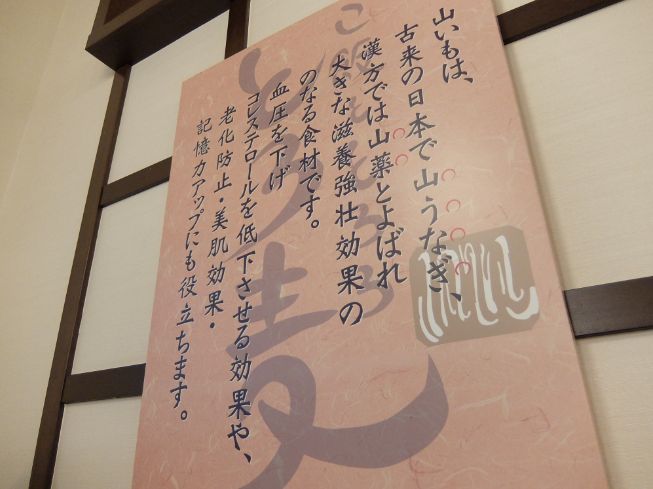 山いもは、
古来の日本で山うなぎ、
漢方では山薬とよばれ
大きな滋養強壮効果の
のなる食材です。
血圧を下げ
コレステロールを低下させる効果や、
老化防止・美肌効果・
記憶力アップにも役立ちます。